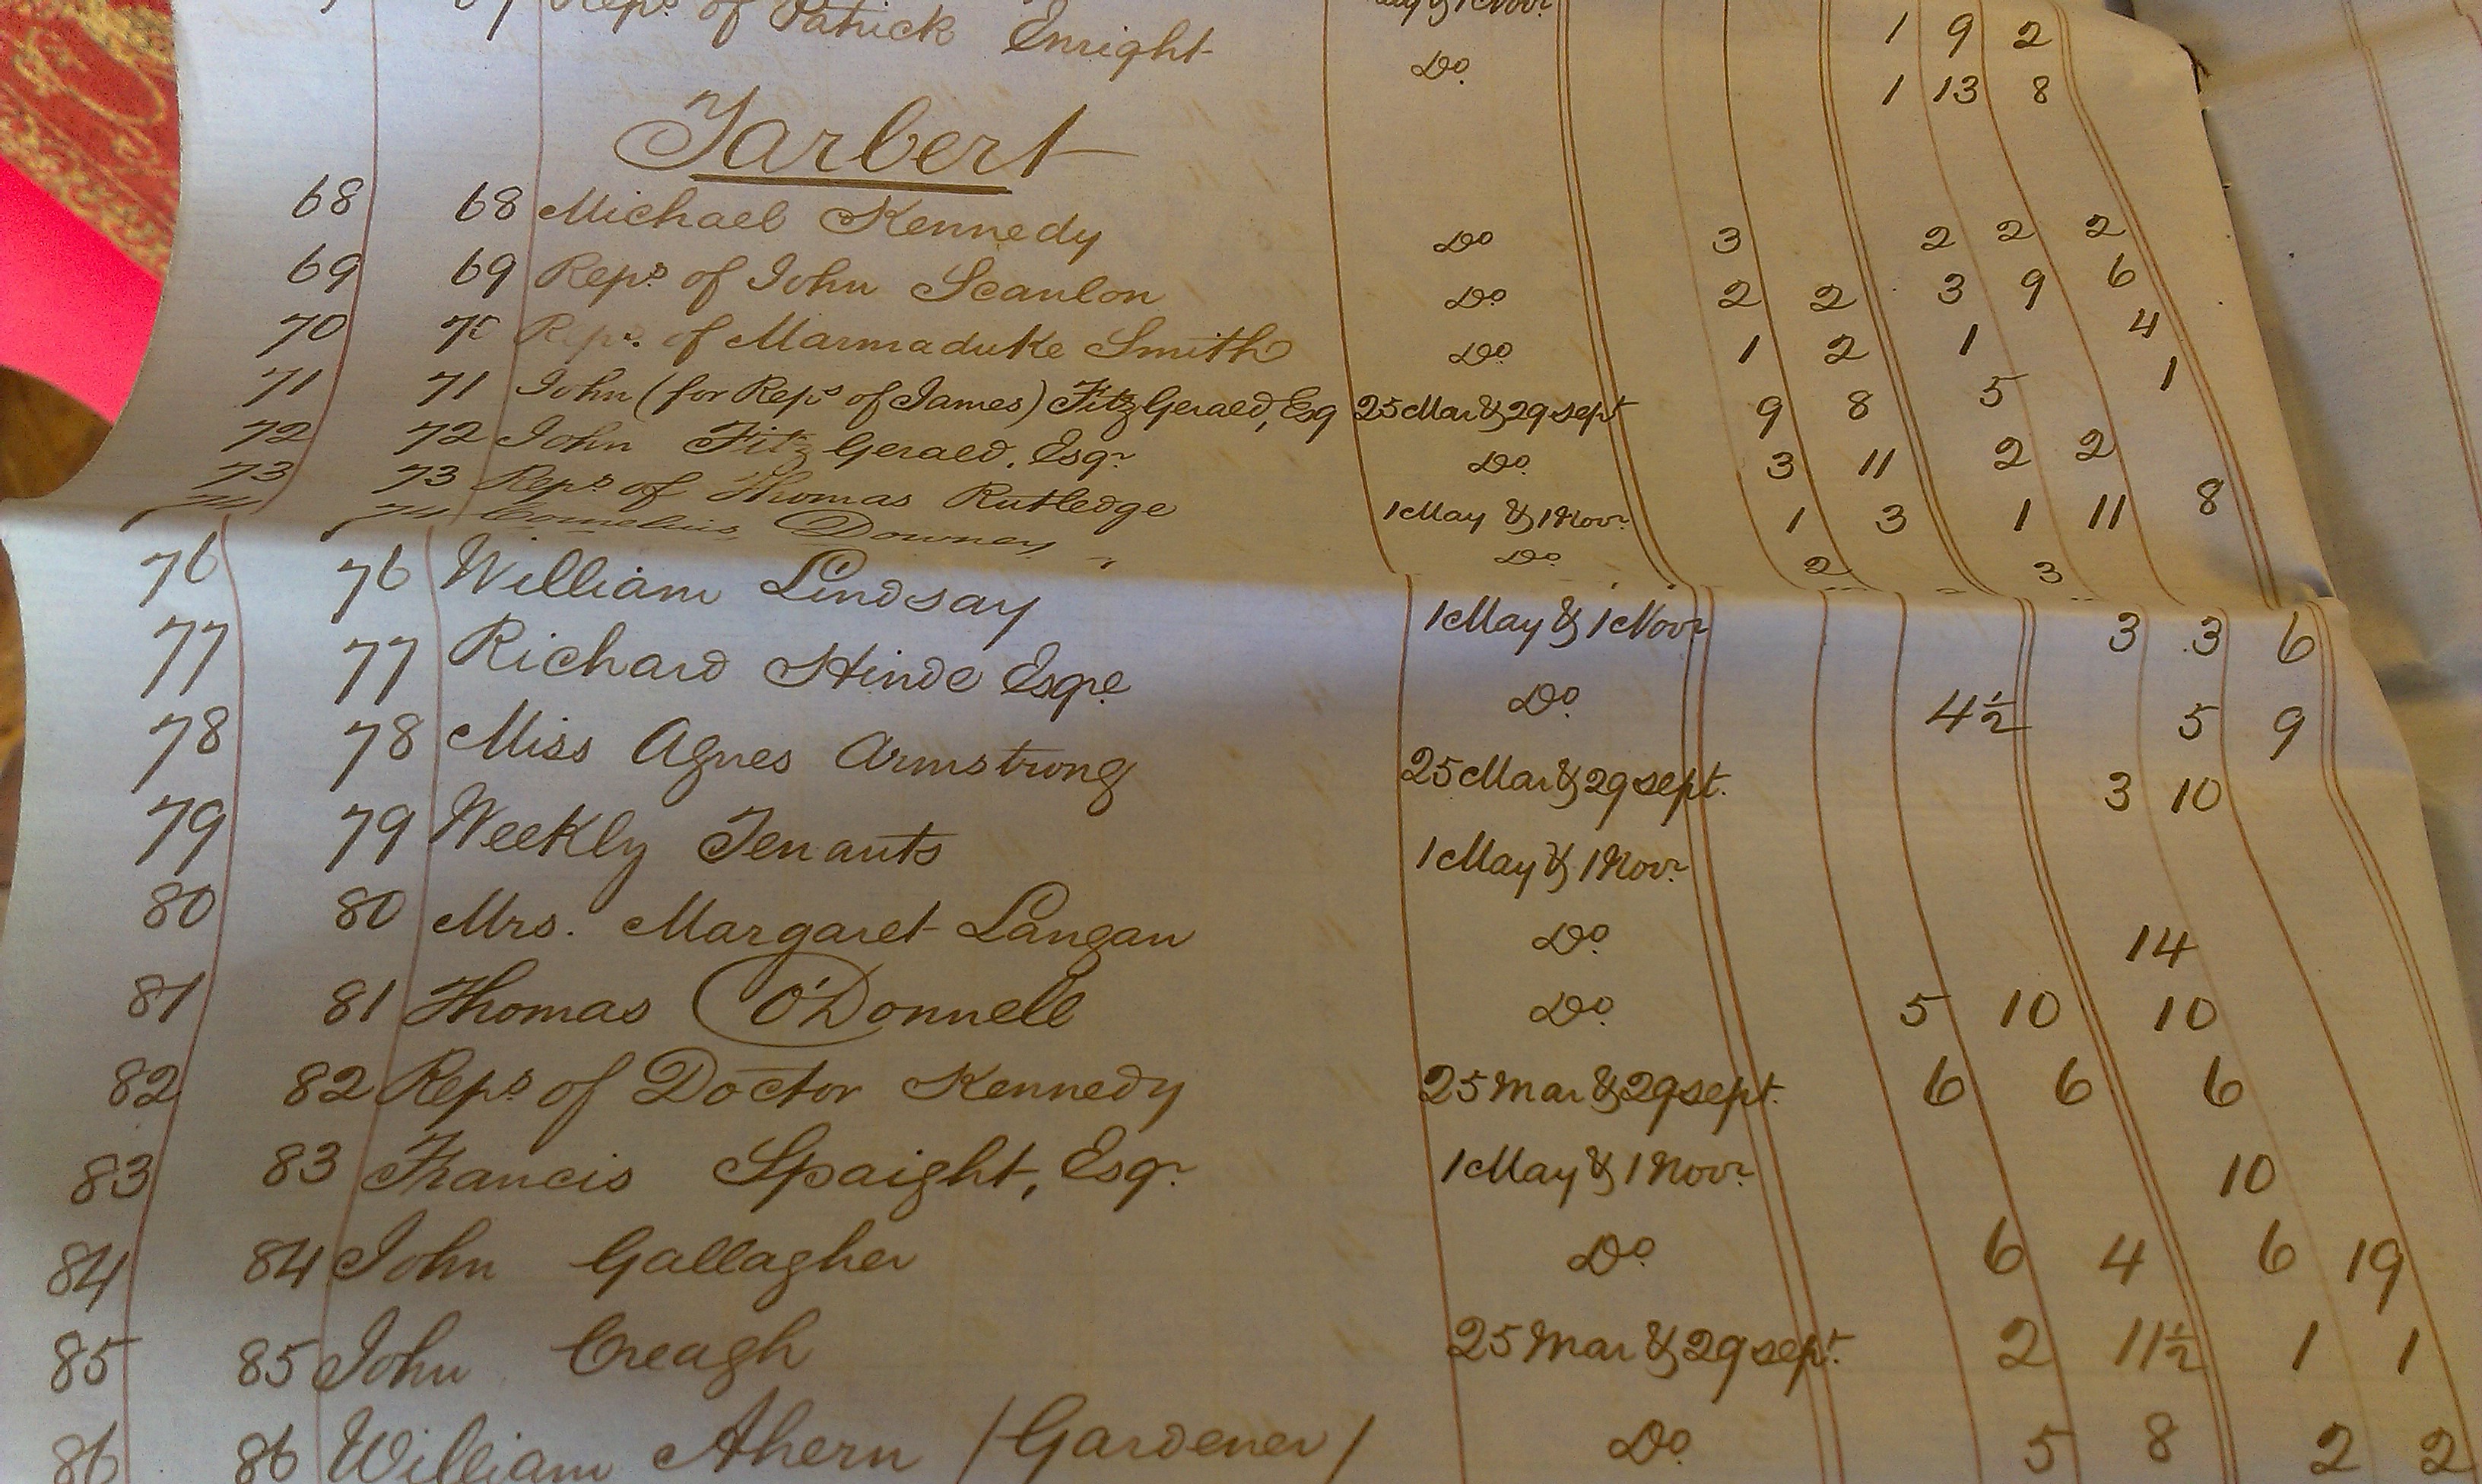 Reps. of Patrick Enright 1 May & 1 Novr. 1 9 2
Do. 1 13 8
Tarbert
68 68 Michael Kennedy Do 3 2 2 2
69 69 Reps. of John Scanlon Do 2 2 3 9 6
70 70 Reps. of Marmaduke Smith Do 1 2 1 4
71 71 John (for Reps of James) FitzGerald, Esq 25 Mar & 29 sept 9 8 5 1
72 72 John FitzGerald, Esqr. Do. 3 11 2 2
73 73 Reps of Thomas Rutledge 1 May & 1 Novr. 1 3 1 11 8
74 74 Cornelius Downey Do 2 3
76 76 William Lindsay 1 May & 1 Novr 3 3 6
77 77 Richard Hinde Esqre Do. 4½ 5 9
78 78 Miss Agnes Armstrong 25 Mar & 29 sept. 3 10
79 79 Weekly Tenants 1 May & 1 Novr.
80 80 Mrs. Margaret Langan Do 14
81 81 Thomas O'Donnell Do. 5 10 10
82 82 Reps of Doctor Kennedy 25 Mar & 29 sept. 6 6 6
83 83 Francis Spaight, Esqr. 1 May & 1 Novr. 10
84 84 John Gallagher Do. 6 4 6 19
85 85 John Creagh 25 Mar & 29 sept. 2 11½ 1 1
86 86 William Ahern /Gardener/ Do. 5 8 2 2